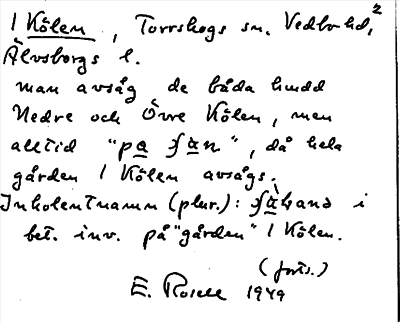 1 Kölen, Torrskogs sn. Vedbo hd, 2
Älvsborgs l.
man avsåg de båda hmdd
Nedre och Övre Kölen, men
alltid "pa ʃan", då hela
gården 1 Kölen avsågs.
Inkolentnamn (plur.):
bet. inv. på "gården" 1 Kölen.
(forts.)
E. Rosell 1949